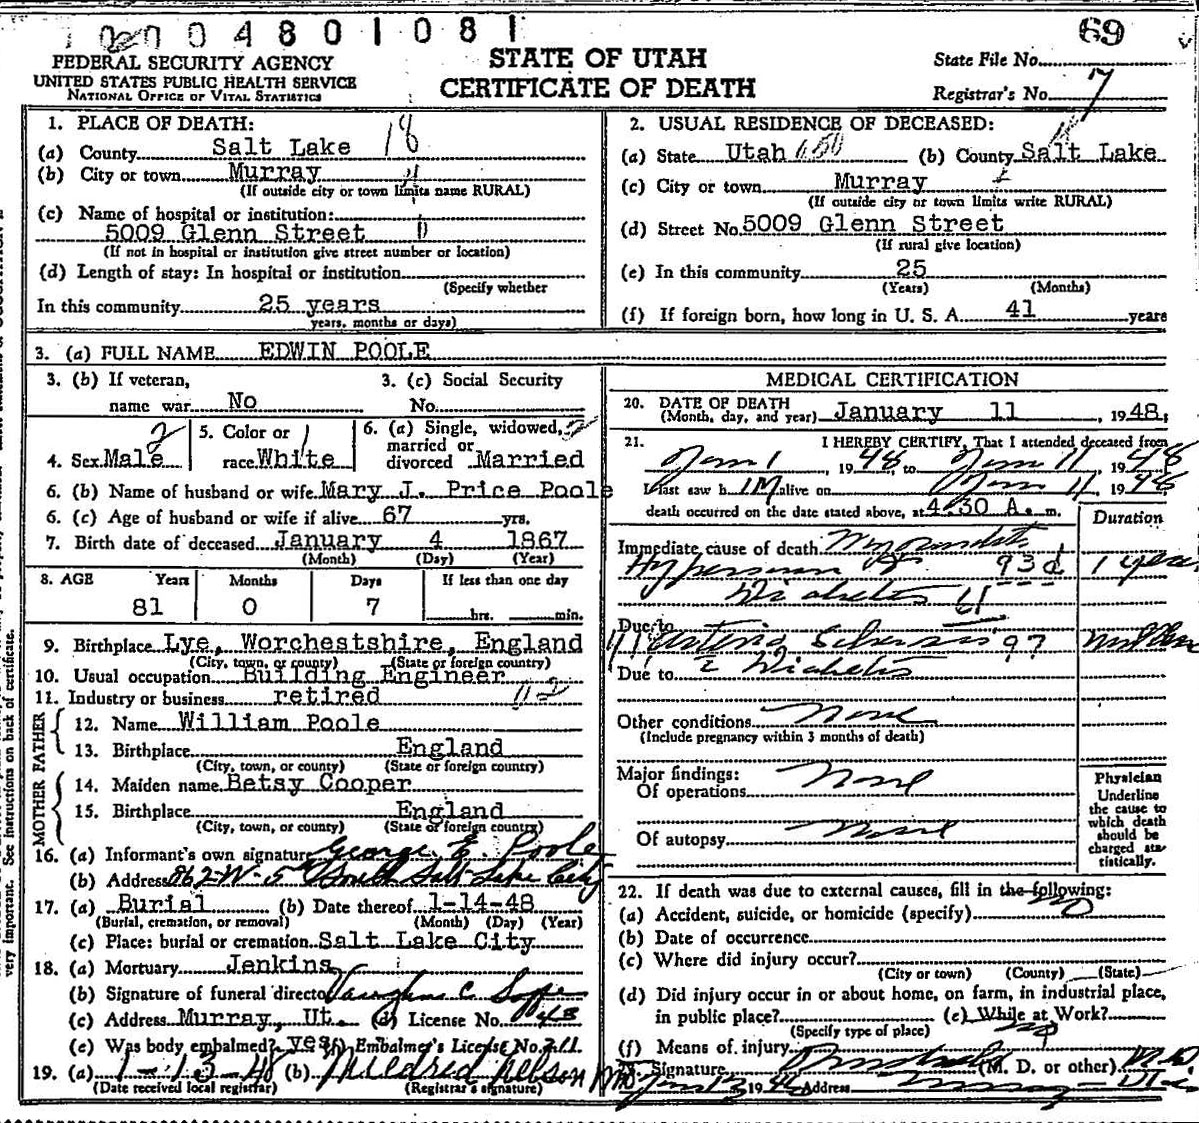 1 0 0 0 4 8 0 1 0 8 1
69
FEDERAL SECURITY AGENCY
UNITED STATES PUBLIC HEALTH SERVICE
NATIONAL OFFICE OF VITAL STATISTICS
STATE OF UTAH
CERTIFICATE OF DEATH
State File No.
Registrar's No. 7
1. PLACE OF DEATH:
(a) County Salt Lake 18
(b) City or town Murray
(If outside city or town limits name RURAL)
(c) Name of hospital or institution:
5009 Glenn Street
(If not in hospital or institution give street number or location)
(d) Length of stay: In hospital or institution
(Specify whether
In this community 25 years
years, months or days)
2. USUAL RESIDENCE OF DECEASED:
(a) State Utah (b) County Salt Lake
(c) City or town Murray
(If outside city or town limits write RURAL)
(d) Street No. 5009 Glenn Street
(If rural give location)
(e) In this community 25
(Years) (Months)
(f) If foreign born, how long in U. S. A. 41 years
3. (a) FULL NAME EDWIN POOLE
3. (b) If veteran,
name war No
3. (c) Social Security
No.
4. Sex Male 2
5. Color or
race White
6. (a) Single, widowed,
married or
divorced Married
6. (b) Name of husband or wife Mary J. Price Poole
6. (c) Age of husband or wife if alive 67 yrs.
7. Birth date of deceased January 4 1867
(Month) (Day) (Year)
8. AGE Years Months Days If less than one day
81 0 7 hrs. min.
9. Birthplace Lye, Worchestshire, England
(City, town, or county) (State or foreign country)
10. Usual occupation Building Engineer
11. Industry or business retired
FATHER
12. Name William Poole
13. Birthplace England
(City, town, or county) (State or foreign country)
MOTHER
14. Maiden name Betsy Cooper
15. Birthplace England
(City, town, or county) (State or foreign country)
16. (a) Informant's own signature George E. Poole
(b) Address 862-W-5th South Salt Lake City
17. (a) Burial (b) Date thereof 1-14-48
(Burial, cremation, or removal) (Month) (Day) (Year)
(c) Place: burial or cremation Salt Lake City
18. (a) Mortuary Jenkins
(b) Signature of funeral director
(c) Address Murray, Ut. (d) License No.
(e) Was body embalmed? yes (f) Embalmer's License No. 211
19. (a) 1-13-48 (b) Mildred Nelson
(Date received local registrar) (Registrar's signature)
MEDICAL CERTIFICATION
20. DATE OF DEATH
(Month, day, and year) January 11, 1948;
21. I HEREBY CERTIFY, That I attended deceased from
Jan 1, 1948 to Jan 11, 1948
I last saw h IM alive on Jan 11, 1948
death occurred on the date stated above, at 4:30 A. m.
Duration
Immediate cause of death
93d 1 year
Diabetes 61
Due to
97
Due to Diabetes
Other conditions None
(Include pregnancy within 3 months of death)
Major findings:
Of operations None
Of autopsy None
Physician
Underline
the cause to
which death
should be
charged sta-
tistically.
22. If death was due to external causes, fill in the following:
(a) Accident, suicide, or homicide (specify) no
(b) Date of occurrence
(c) Where did injury occur?
(City or town) (County) (State)
(d) Did injury occur in or about home, on farm, in industrial place,
in public place? (e) While at Work? no
(Specify type of place)
(f) Means of injury
23. Signature (M. D. or other) M.D.
Jan 13 1948 Address Murray - Ut
very important. See instructions on back of certificate.